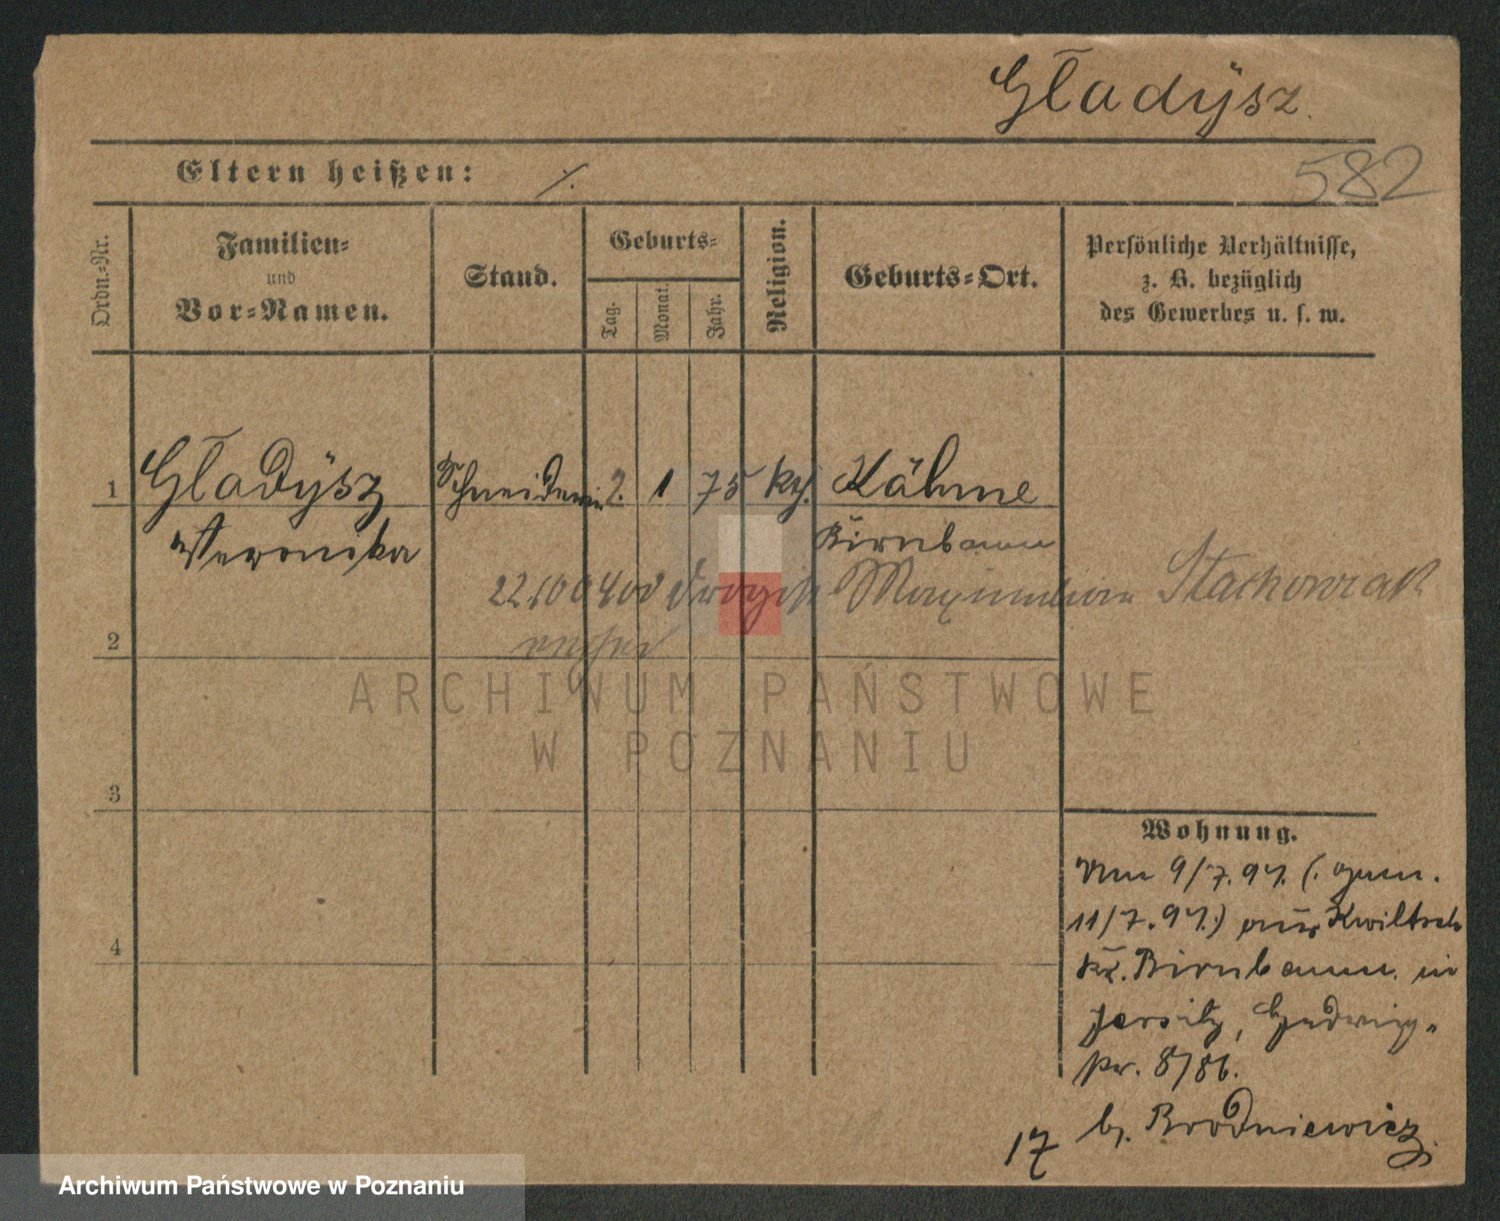 Gładÿsz.
Eltern heißen: ⁒
582
Ordn.=Nr.
Familien=
und
Vor=Namen.
Stand.
Geburts=
Tag.
Monat.
Jahr.
Religion.
Geburts=Ort.
Persönliche Verhältnisse,
z. B. bezüglich
des Gewerbes u. s. w.
1 Gładÿsz Schneiderin 2. 1 75 kth. Kähme
Weronika Birnbaum
22.10 04 Maximilian Stachowiak
2
ARCHIWUM PAŃSTWOWE
W POZNANIU
3
Wohnung.
Am 9/7.97. (. gem.
4
11/7.97.) aus Kwiltsch
Kr. Birnbaum in
Jersitz, Hedwig=
str. 8/86.
b. Brodniewicz.
17
Archiwum Państwowe w Poznaniu